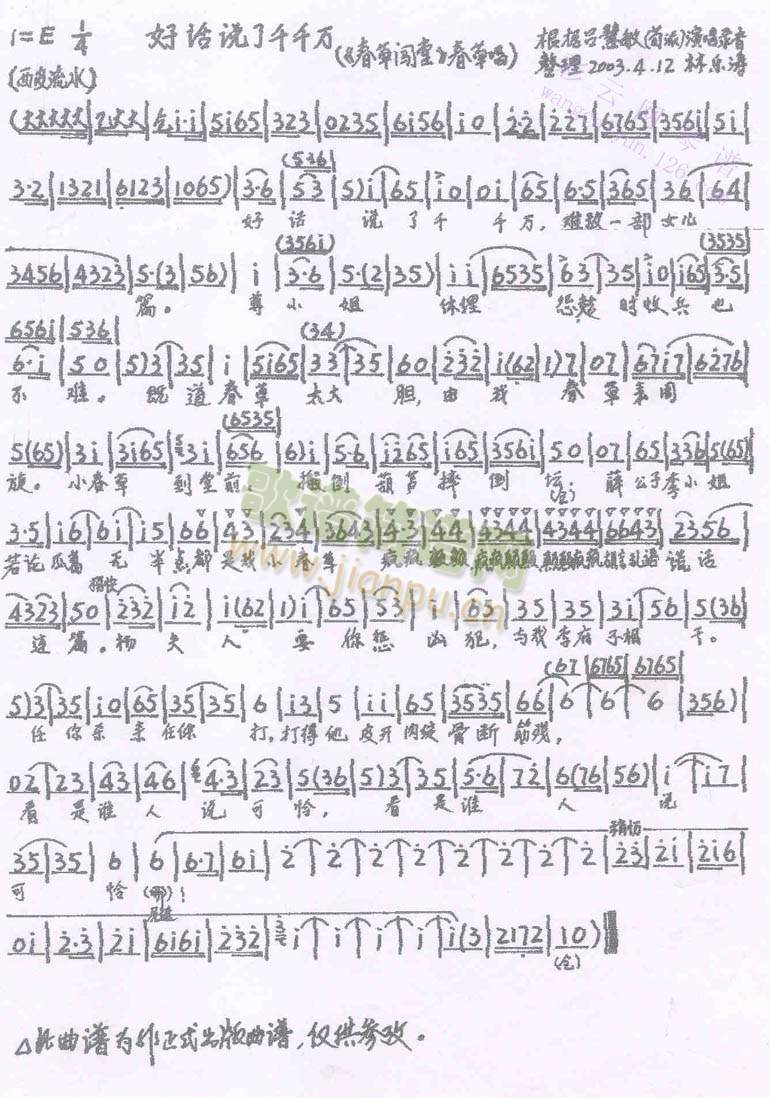 1=E 1/4 好话说了千千万 (《春草闯堂》春草唱) 根据吕慧敏(荀派)演唱录音
(西皮流水) 整理 2003.4.12
5i65|323|0235|6i56|i0|2·2|227|6765|356i|5i|
3·2|1321|6123|1065)|3·6|53|5)i|65|i0|0i|65|6·5|365|36|64|
好 话 说 了 千 千 万, 难 一 部 女 儿
3456|4323|5·(3|56)|i|3·6|5·(2|35)|ii|6535|63|35|i0|i65|3·5|
篇。 尊 小 姐 休 时 收 兵 也
656i|536
6·i|50|5)3|35|i|5i65|33|35|60|232|i(62|1)7|07|67i7|6276|
不 难。 既 道 春 草 太 大 胆, 由 我 春 草 来 周
5(65)|3i|3i65|3i|656|6)i|5·6|i265|i65|356i|50|07|65|336|5(65)|
旋。 小 春 草 到 堂 前, 倒 葫 芦 摔 倒 坛; 薛 公 子 李 小 姐
3·5|i6|6i|i5|66|43|234|3643|43|44|4344|4344|6643|2356|
若论瓜葛 无 半点,都 是我小 春 草 疯疯 癫癫 疯疯癫癫 胡言乱语 谎 话
4323|50|232|i2|i(62|1)i|65|53|i|65|35|35|3i|56|5(36|
连 篇。杨 夫 人 要 你 凶 犯, 与 我 李 府 不 相 干。
(67|6765|6765|
5)3|35|i0|65|35|35|6|i3|5|ii|65|3535|66|6|6|6|356)|
任 你 杀 来 任你 打, 打得 他 皮开 肉绽 骨 断 筋 残,
02|23|43|46|4·3|23|5(36|5)3|35|5·6|72|6(76|56)|i|i7|
看 是 谁 人 说 可 怜, 看 是 谁 人 说
稍切
35|35|6|6|6·7|6i|2|2|2|2|2|2|2|2|23|2i|2i6|
可 怜 (哪)!
0i|2·3|2i|6i6i|232|i|i|i|i|i(3|2172|10)
(仓)
△此曲谱为非正式出版曲谱,仅供参考。
歌谱简谱网
www.jianpu.cn